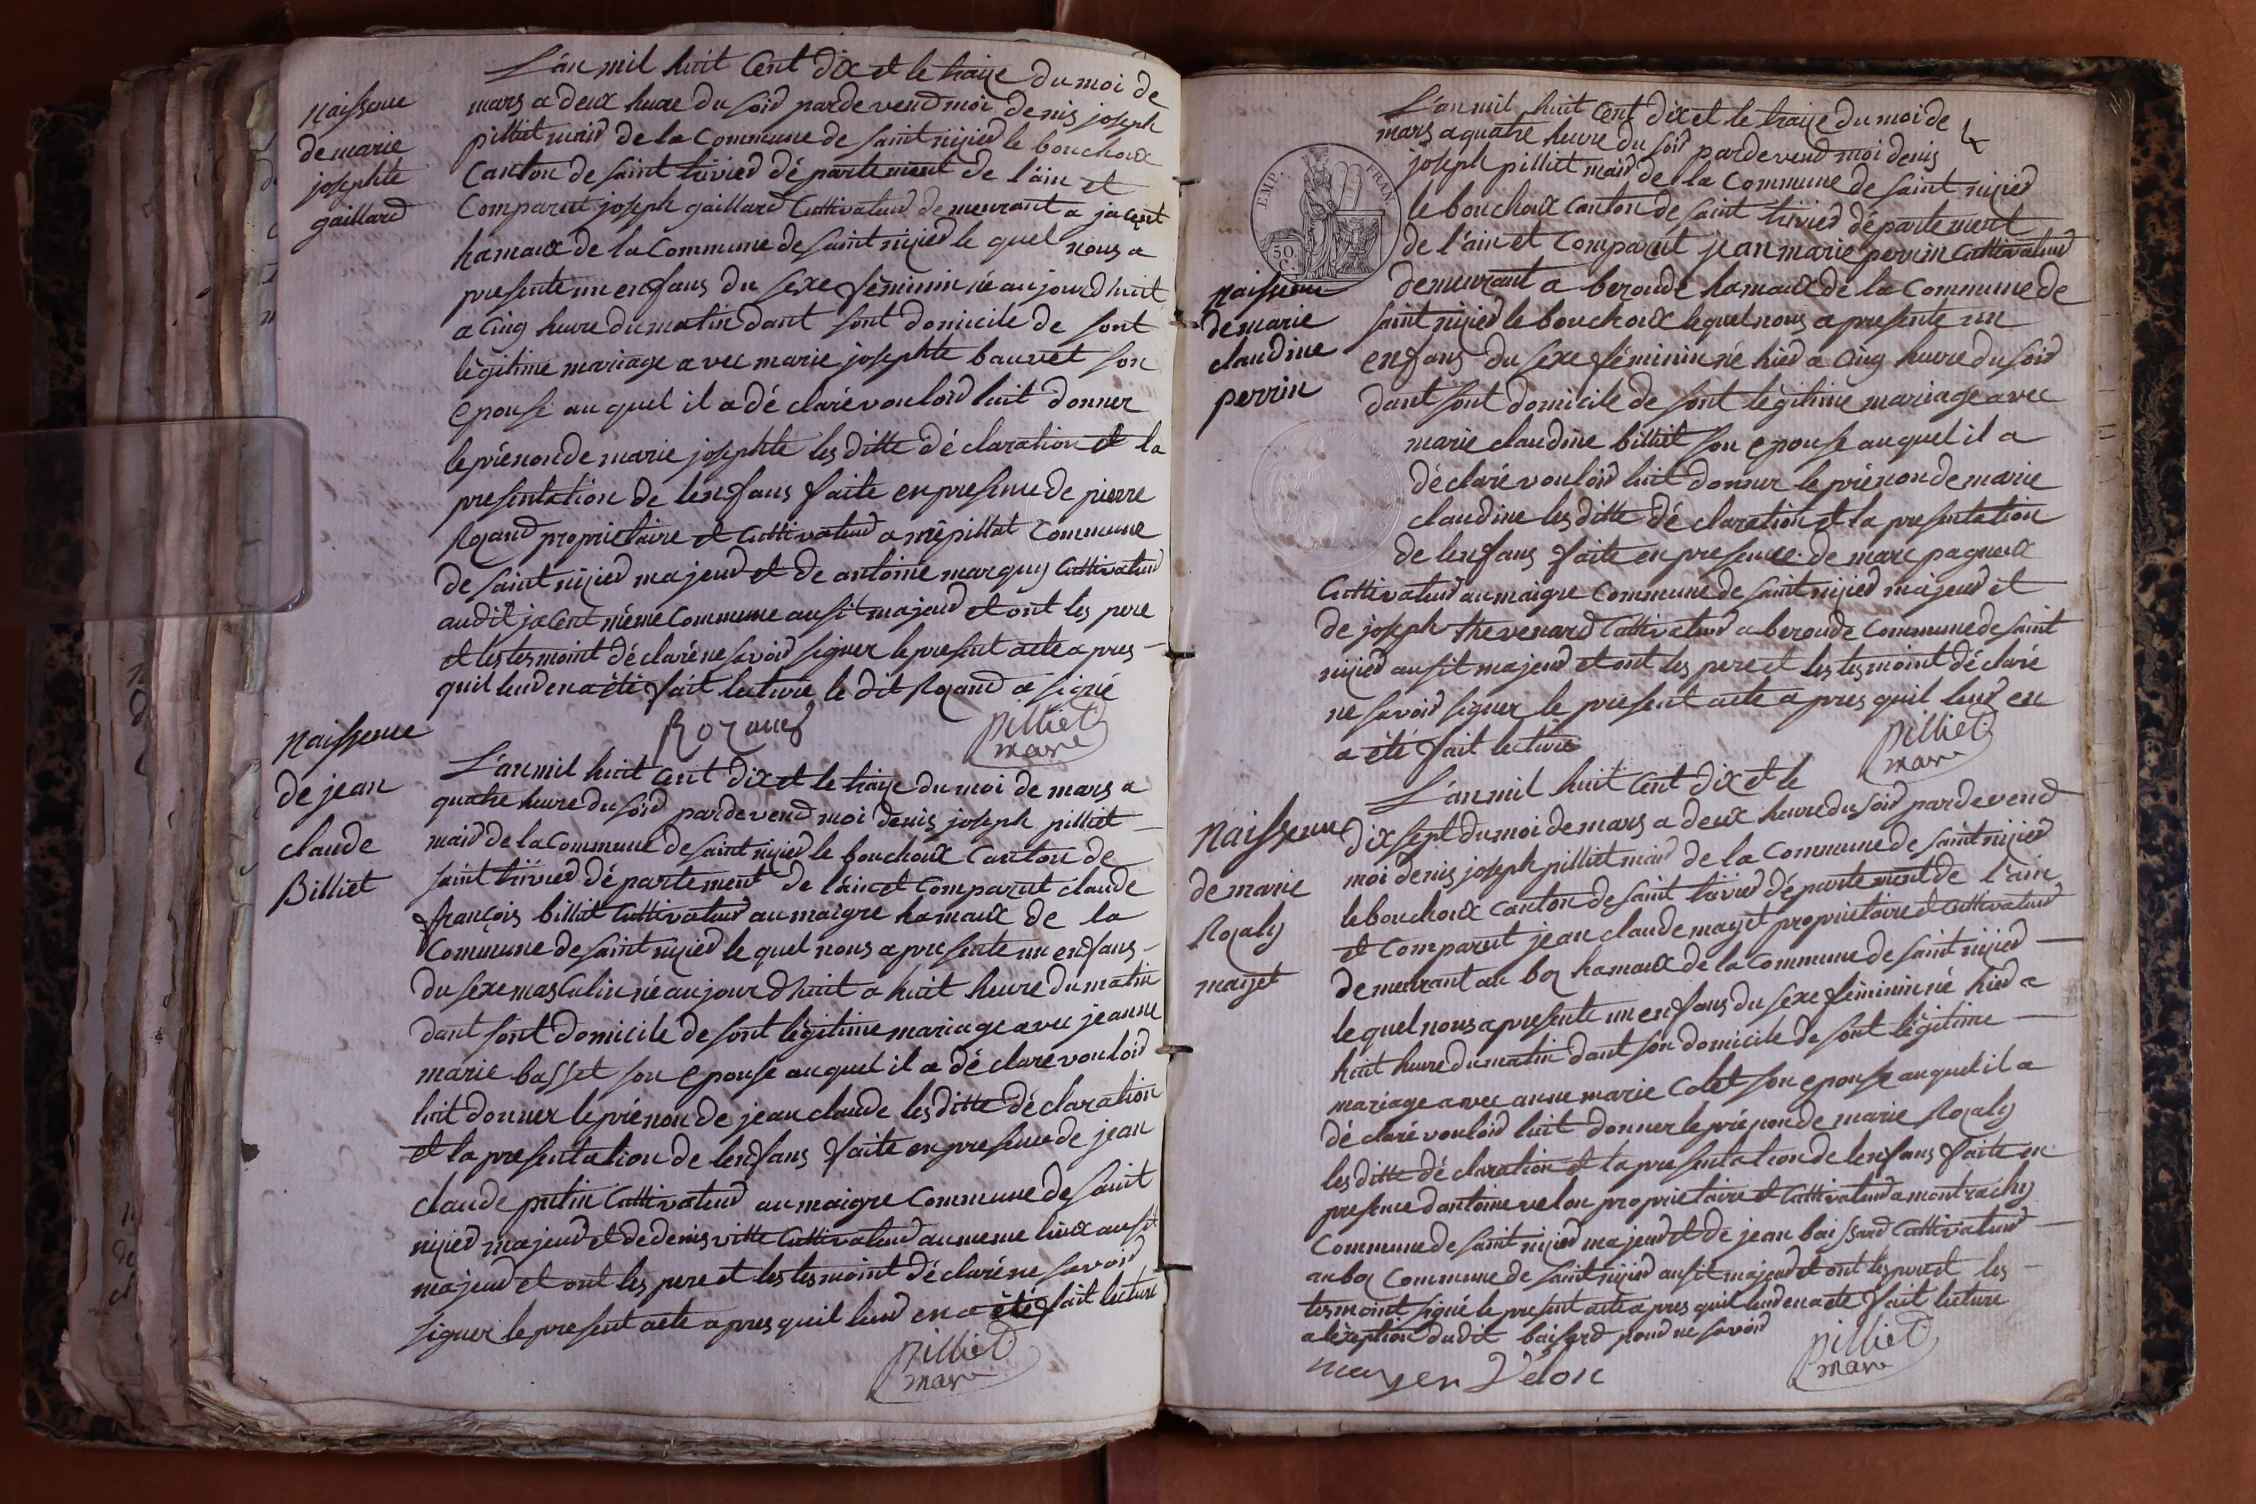 naissence
de marie
josephte
gaillard
L'an mil huit Cent dix et le traize du moi de
mars a deux heure du soir pardevend moi denis joseph
pilliet mair de la Commune de saint nizied le bouchoux
Canton de saint trivied département de l'ain et
Comparut joseph gaillard Cultivateur demeurant a jacent
hamaux de la Commune de saint nizied le quel nous a
presente un enfans du sexe féminin né aujourdhuit
a Cinq heure du matin dant sont domicile de sont
légitime mariage avec marie josephte bauvet son
epouse auquel il a déclaré vouloir luit donner
le prénon de marie josephte les ditte déclaration et la
presentation de lenfans faite en presence de pierre
Rozand proprietaire et Cultivateur a mépillat Commune
de saint nizied majeur et de antoine marguy Cultivateur
audit jacent même Commune ausit majeur et ont les pere
et les tesmoint déclaré ne savoir signer le present acte apres
quil leur en a été fait lecture le dit Rozand a signé
Rozand pilliet
mare
naissence
de jean
claude
Billiet
L'an mil huit Cent dix et le traize du moi de mars a
quatre heure du soir pardevend moi denis joseph pilliet
mair de la Commune de saint nizied le bouchoux Canton de
saint trivied département de l'ain et Comparut claude
françois billiet Cultivateur au maigre hamaux de la
Commune de saint nizied le quel nous a presente un enfans
du sexe masculin né aujourdhuit a huit heure du matin
dant sont domicile de sont légitime mariage avec jeanne
marie basset son epouse auquel il a déclaré vouloir
luit donner le prénon de jean claude les ditte déclaration
et la presentation de lenfans faite en presence de jean
claude putin Cultivateur au maigre Commune de saint
nizied majeur et de denis vitte Cultivateur au meme lieux ausit
majeur et ont les pere et les tesmoint déclaré ne savoir
signer le present acte apres quil leur en a été fait lecture
pilliet
mare
EMP. FRAN.
50
C.
naissence
de marie
claudine
perrin
L'an mil huit Cent dix et le traize du moi de
mars a quatre heure du soir pardevend moi denis
joseph pilliet mair de la Commune de saint nizied
le bouchoux Canton de saint trivied département
de l'ain et Comparut jean marie perrin Cultivateur
demeurant a beroude hamaux de la Commune de
saint nizied le bouchoux lequel nous a presente un
enfans du sexe féminin né hier a Cinq heure du soir
dant sont domicile de sont légitime mariage avec
marie claudine billiet son epouse auquel il a
déclaré vouloir luit donner le prénon de marie
claudine les ditte déclaration et la presentation
de lenfans faite en presence de marc pagneux
Cultivateur au maigre Commune de saint nizied majeur et
de joseph thevenard Cultivateur a beroude Commune de saint
nizied ausit majeur et ont les pere et les tesmoint déclaré
ne savoir signer le present acte apres quil leur en
a été fait lecture pilliet
mare
naissence
de marie
Rozaly
mayet
L'an mil huit Cent dix et le
dix sept du moi de mars a deux heure du soir pardevend
moi denis joseph pilliet mair de la Commune de saint nizied
le bouchoux Canton de saint trivied département de l'ain
et Comparut jean claude mayet proprietaire et Cultivateur
demeurant au boz hamaux de la Commune de saint nizied
le quel nous a presente un enfans du sexe féminin né hier a
huit heure du matin dant son domicile de sont légitime
mariage avec anne marie Colet son epouse auquel il a
déclaré vouloir luit donner le prénon de marie Rozaly
les ditte déclaration et la presentation de lenfans faite en
presence dantoine velon proprietaire et Cultivateur a montrachy
Commune de saint nizied majeur et de jean baissard Cultivateur
au boz Commune de saint nizied ausit majeur et ont les pere et les
tesmoint signé le present acte apres quil leur en a été fait lecture
a lexeption dudit baisard pour ne savoir
mayer Velon pilliet
mare